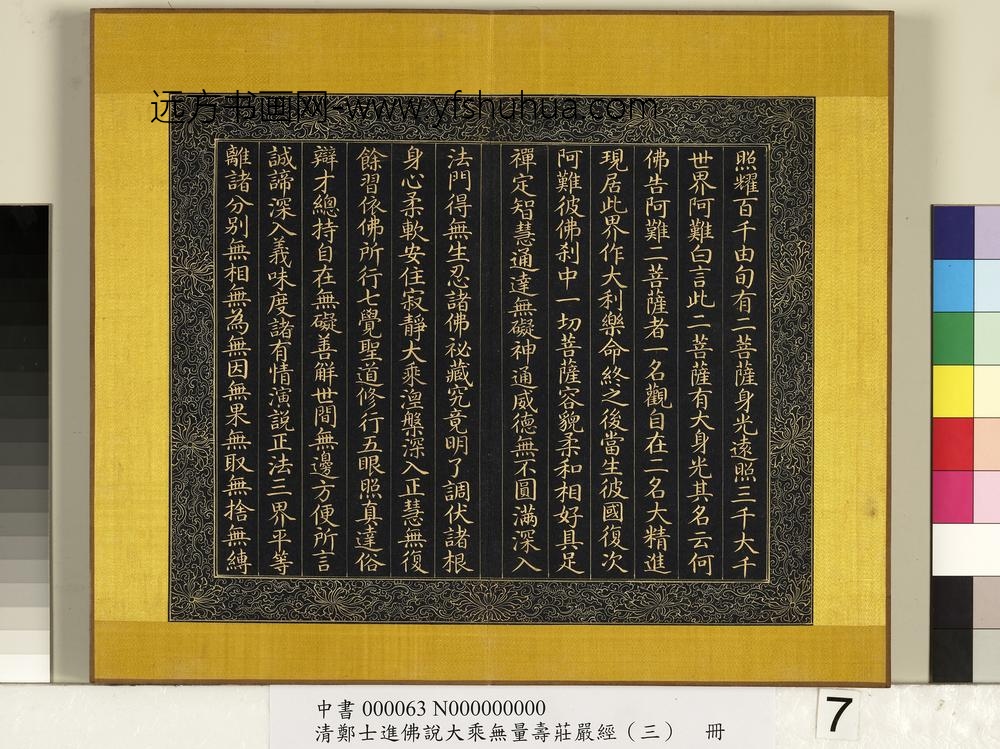 远方书画网-www.yfshuhua.com
照耀百千由旬有二菩薩身光遠照三千大千
世界阿難白言此二菩薩有大身光其名云何
佛告阿難二菩薩者一名觀自在二名大精進
現居此界作大利樂命終之後當生彼國復次
阿難彼佛刹中一切菩薩容貌柔和相好具足
禪定智慧通達無礙神通威德無不圓滿深入
法門得無生忍諸佛祕藏究竟明了調伏諸根
身心柔軟安住寂靜大乘涅槃深入正慧無復
餘習依佛所行七覺聖道修行五眼照真達俗
辯才總持自在無礙善解世間無邊方便所言
誠諦深入義味度諸有情演說正法三界平等
離諸分别無相無為無因無果無取無捨無縛
中書 000063 N000000000
清鄭士進佛說大乘無量壽莊嚴經（三） 冊
7